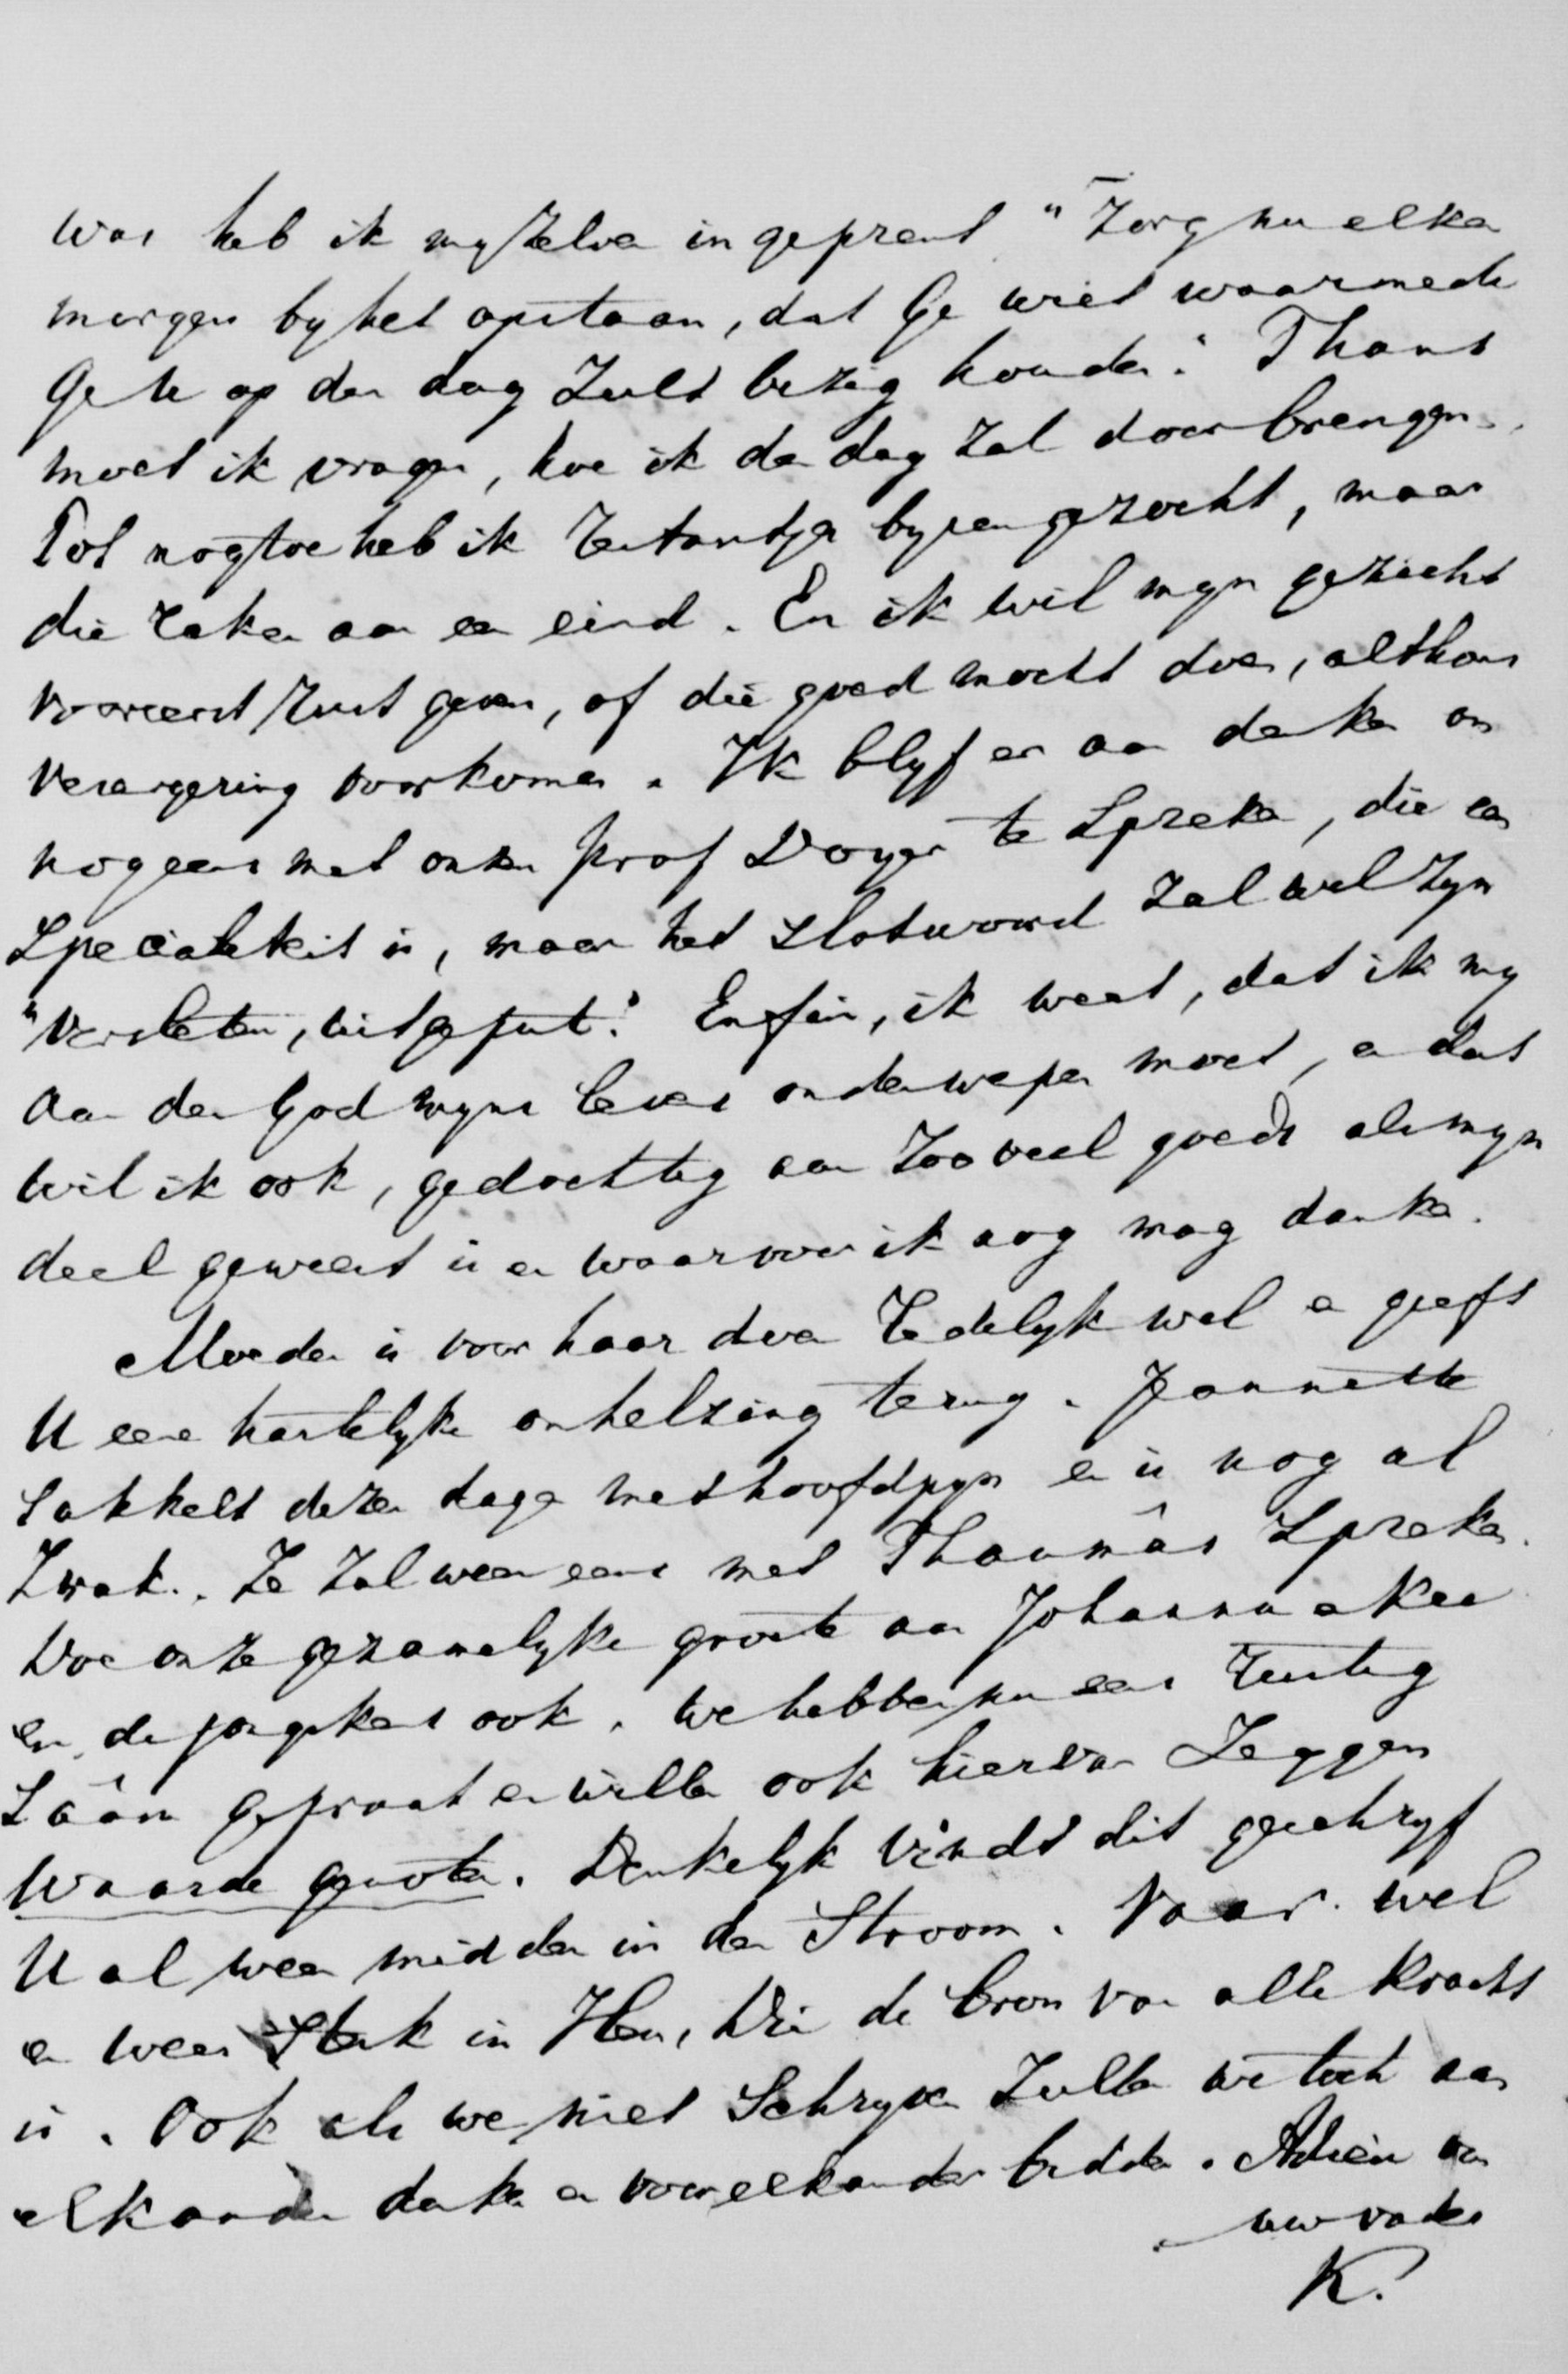 was heb ik myzelven ingeprent "Zorg nu elken
morgen by het opstaan, dat Ge wiet waarmede
Ge u op den dag zult bezig houden." Thans
moet ik vragen, hoe ik den dag zal doorbrengen.
Tot nogtoe heb ik byeengezocht, maar
die raken aan een eind. En ik wil myn gezicht
vooreerst rust geven, of die goed mocht doen, althans
verergering voorkomen. Ik blyf er aan denken om
nog eens met onzen Prof Doyer te spreken, die een
Specialiteit is, maar het slotwoord zal wel zyn
"versleten, uitgeput." Enfin, ik weet, dat ik my
aan den God myns levens onderwerpen moet, en dat
wil ik ook, gedachtig aan zooveel goeds als myn
deel geweest is en waarvoor ik nog mag danken.
Moeder is voor haar doen redelyk wel en geeft
U eene hartelyke omhelzing terug. Jeannette
sukkelt dezer dagen met hoofdpyn en is nog al
zwak. Ze zal weer eens met Thomas spreken.
Doe onze gezamelyke groete aan Johanna en Kee
en de jongskens ook. We hebben nu eens rustig
saân gepraat en willen ook hiervan zeggen
waarde genoten. Denkelyk vindt dit geschryf
U al weer midden in den Stroom. Vaar wel
en wees sterk in Hem, Die de bron van alle kracht
is. Ook als we niet schryven zullen we toch aan
elkander denken en voor elkander bidden. Adieu van
uw vader
K.